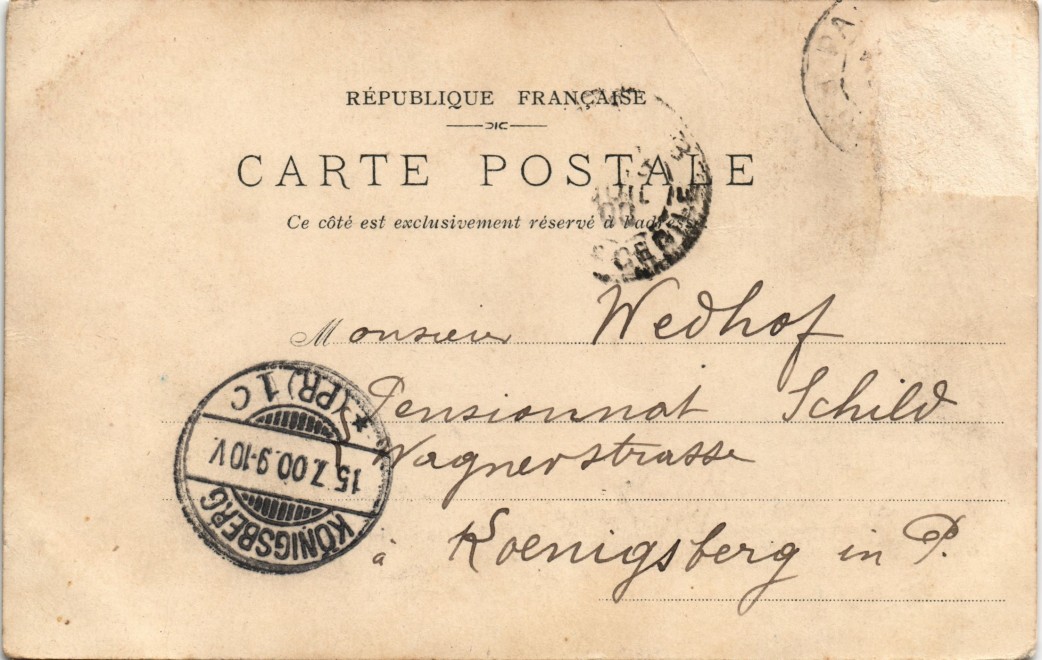 RÉPUBLIQUE FRANÇAISE
CARTE POSTALE
Ce côté est exclusivement réservé à l'adresse
PA
13
JUIL
00
Monsieur Wedhof
Pensionnat Schild
Wagnerstrasse
à Koenigsberg in P.
KÖNIGSBERG
15.7.00.9-10V.
* (PR) 1 C